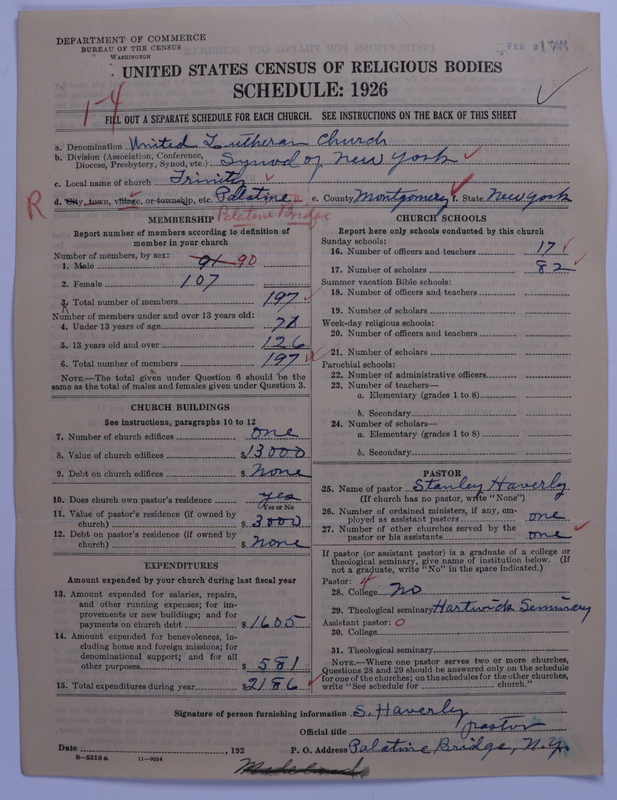 DEPARTMENT OF COMMERCE
BUREAU OF THE CENSUS
WASHINGTON
FEB
UNITED STATES CENSUS OF RELIGIOUS BODIES
SCHEDULE: 1926
1-4
FILL OUT A SEPARATE SCHEDULE FOR EACH CHURCH. SEE INSTRUCTIONS ON THE BACK OF THIS SHEET
a. Denomination United Lutheran Church
b. Division (Association, Conference, Diocese, Presbytery, Synod, etc.) Synod of New York
c. Local name of church Trinity
R d. City, town, village, or township, etc. Palatine e. County Montgomery f. State New York
Palatine Bridge
MEMBERSHIP
Report number of members according to definition of member in your church
Number of members, by sex:
1. Male 91 90
2. Female 107
3. Total number of members 197
Number of members under and over 13 years old:
4. Under 13 years of age 71
5. 13 years old and over 126
6. Total number of members 197
NOTE.—The total given under Question 6 should be the same as the total of males and females given under Question 3.
CHURCH BUILDINGS
See instructions, paragraphs 10 to 12
7. Number of church edifices one
8. Value of church edifices $13000
9. Debt on church edifices $ None
10. Does church own pastor's residence yes
Yes or No
11. Value of pastor's residence (if owned by church) $ 3000
12. Debt on pastor's residence (if owned by church) $ None
EXPENDITURES
Amount expended by your church during last fiscal year
13. Amount expended for salaries, repairs, and other running expenses; for improvements or new buildings; and for payments on church debt $1605
14. Amount expended for benevolences, including home and foreign missions; for denominational support; and for all other purposes $ 581
15. Total expenditures during year $2186
CHURCH SCHOOLS
Report here only schools conducted by this church
Sunday schools:
16. Number of officers and teachers 17
17. Number of scholars 82
Summer vacation Bible schools:
18. Number of officers and teachers
19. Number of scholars
Week-day religious schools:
20. Number of officers and teachers
21. Number of scholars
Parochial schools:
22. Number of administrative officers
23. Number of teachers—
a. Elementary (grades 1 to 8)
b. Secondary
24. Number of scholars—
a. Elementary (grades 1 to 8)
b. Secondary
PASTOR
25. Name of pastor Stanley Haverly
(If church has no pastor, write "None")
26. Number of ordained ministers, if any, employed as assistant pastors one
27. Number of other churches served by the pastor or his assistants one
If pastor (or assistant pastor) is a graduate of a college or theological seminary, give name of institution below. (If not a graduate, write "No" in the space indicated.)
Pastor: 4
28. College No
29. Theological seminary Hartwick Seminary
Assistant pastor: 0
30. College
31. Theological seminary
NOTE.—Where one pastor serves two or more churches, Questions 28 and 29 should be answered only on the schedule for one of the churches; on the schedules for the other churches, write "See schedule for church."
Signature of person furnishing information S. Haverly
Official title pastor
Date , 192 P. O. Address Palatine Bridge, N.Y.
8—5518 a 11—9054